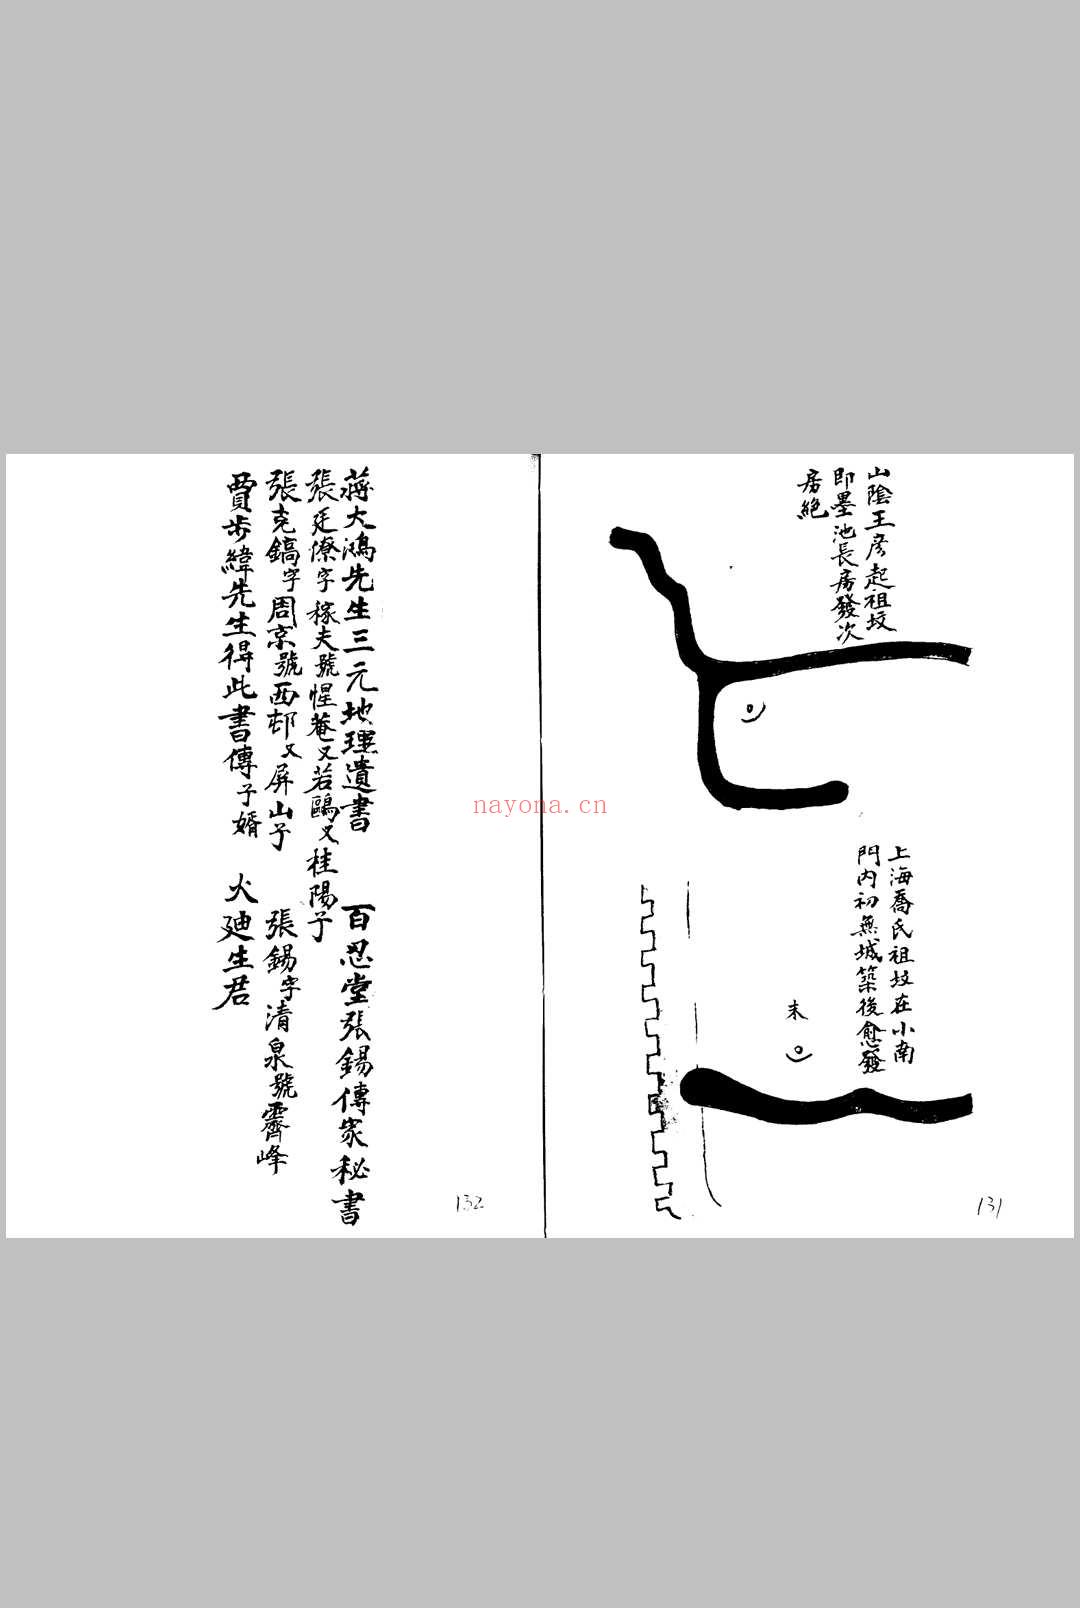 山陰王彦起祖坟
即墨池長房發次
房絶
上海喬氏祖坟在小南
門内初無城築後愈發
未
131
蔣大鴻先生三元地理遺書 百忍堂張錫傳家秘書
張廷僚字稼夫號惺菴又若鷗又桂陽子
張克鎬字周京號西邨又屏山子 張錫字清泉號霽峰
賈步緯先生得此書傳子婿 火廸生君
132
nayona.cn